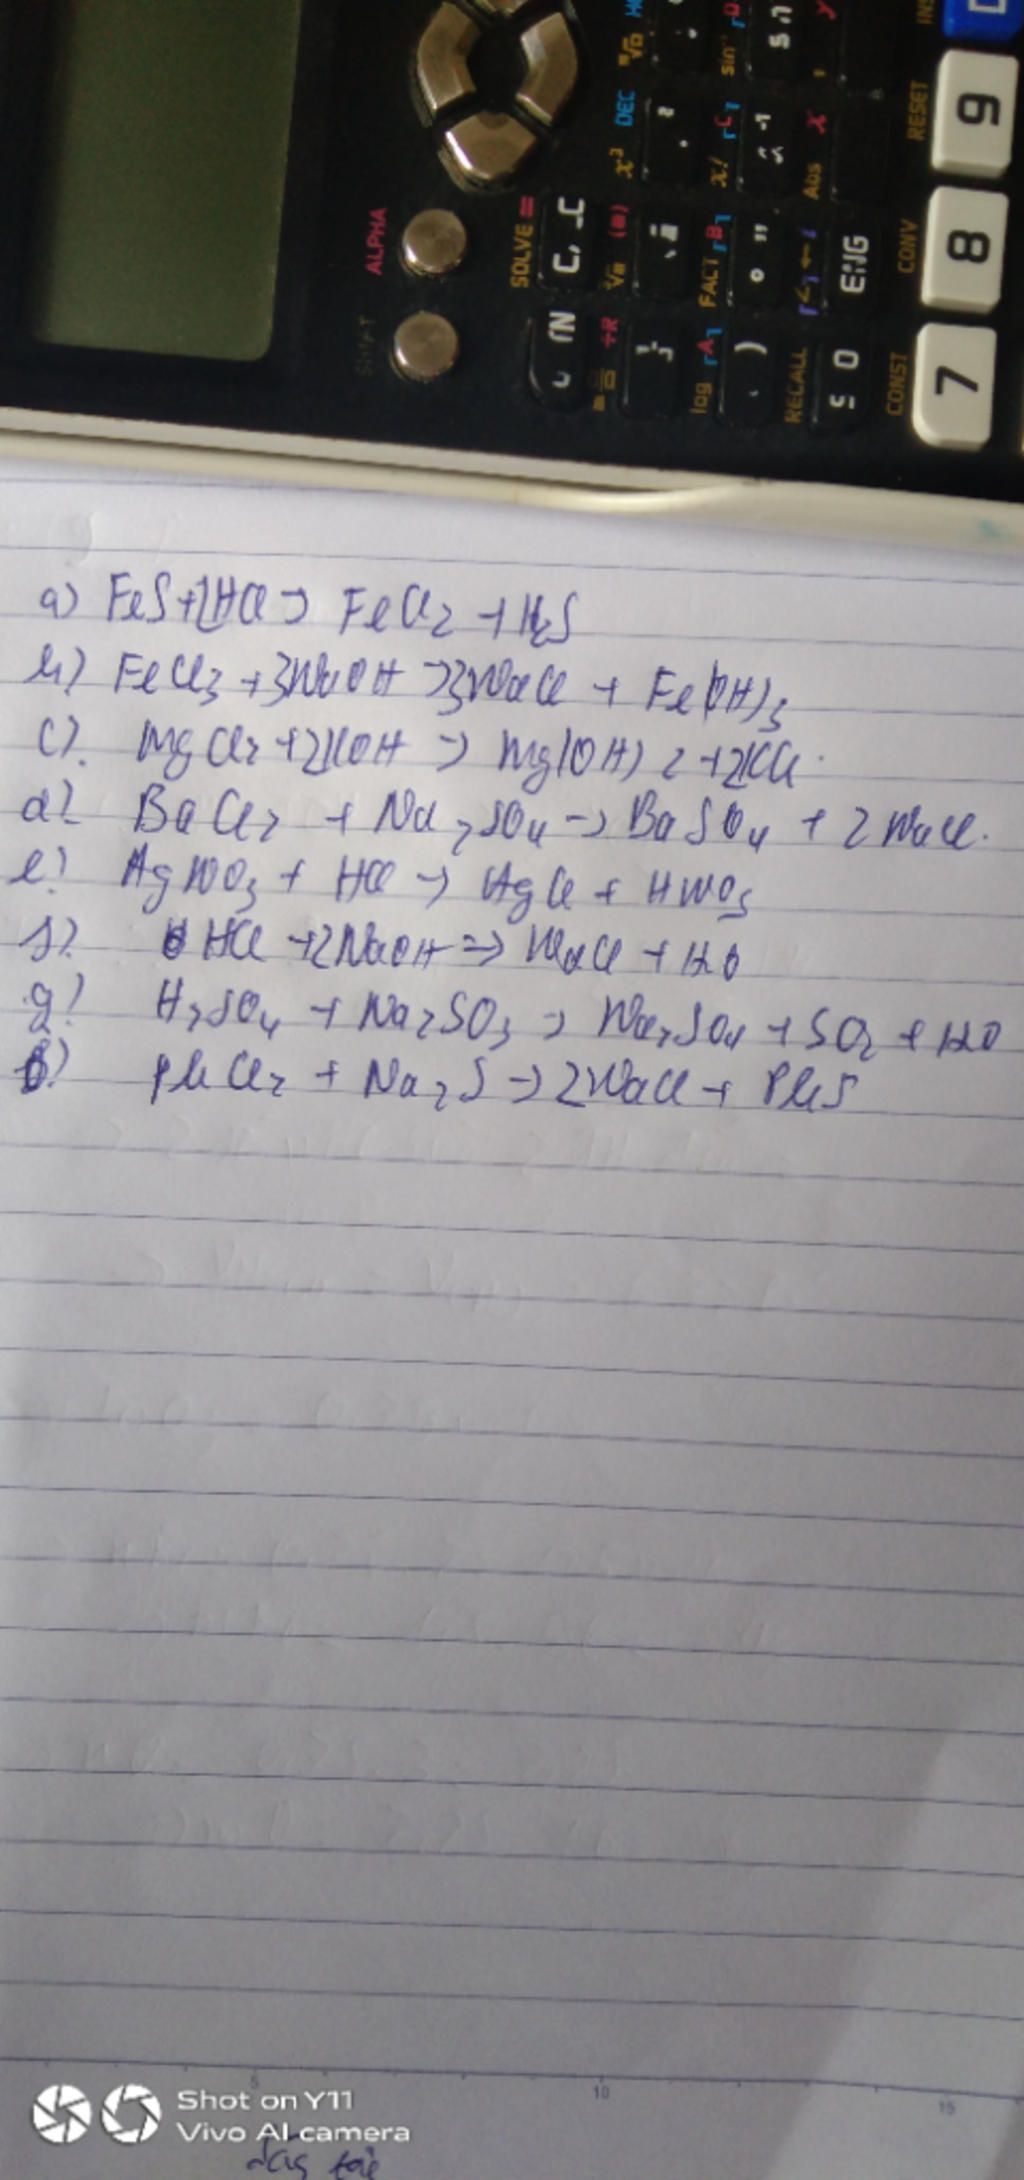 ALPHA
SHIFT
SOLVE =
x³ DEC
x!
Abs x
sin⁻¹
FACT B
log A
÷R
RECALL
ENG
CONST
CONV
RESET
7 8 9
a) FeS + 2HCl → FeCl2 + H2S
b) FeCl3 + 3NaOH → 3NaCl + Fe(OH)3
c) MgCl2 + 2KOH → Mg(OH)2 + 2KCl.
d) BaCl2 + Na2SO4 → BaSO4 + 2NaCl.
e) AgNO3 + HCl → AgCl + HNO3
f) HCl + 2NaOH => NaCl + H2O
g) H2SO4 + Na2SO3 → Na2SO4 + SO2 + H2O
PbCl2 + Na2S → 2NaCl + PbS
5 10 15
Shot on Y11
Vivo AI camera